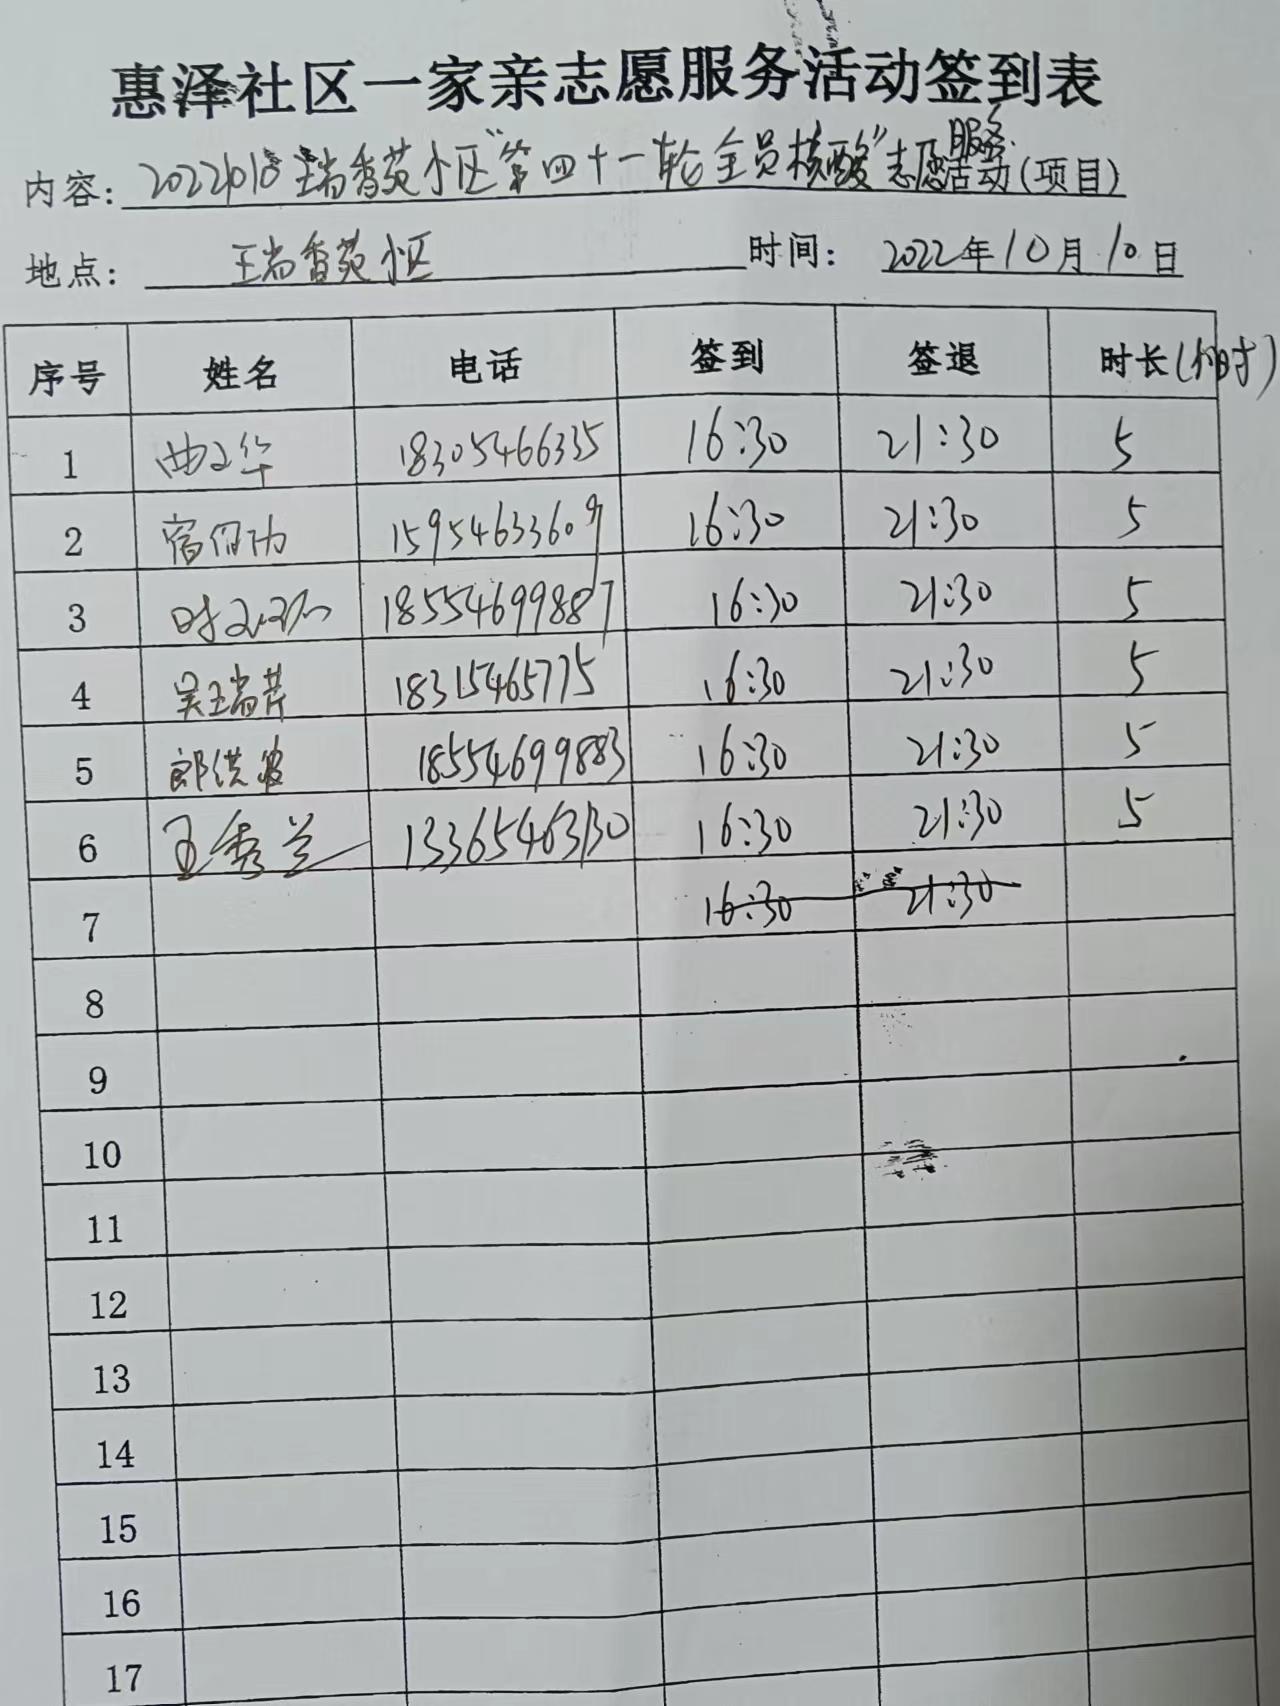 惠泽社区一家亲志愿服务活动签到表
内容：20221010瑞香苑小区“第四十一轮全员核酸”志愿服务活动(项目)
地点：瑞香苑小区 时间：2022年10月10日
序号 姓名 电话 签到 签退 时长(小时)
1 曲文华 18305466335 16:30 21:30 5
2 宿 功 15954633609 16:30 21:30 5
3 时 18554699887 16:30 21:30 5
4 吴瑞芹 18315465775 16:30 21:30 5
5 郎洪波 18554699883 16:30 21:30 5
6 王秀兰 13365463130 16:30 21:30 5
7 16:30 21:30
8
9
10
11
12
13
14
15
16
17